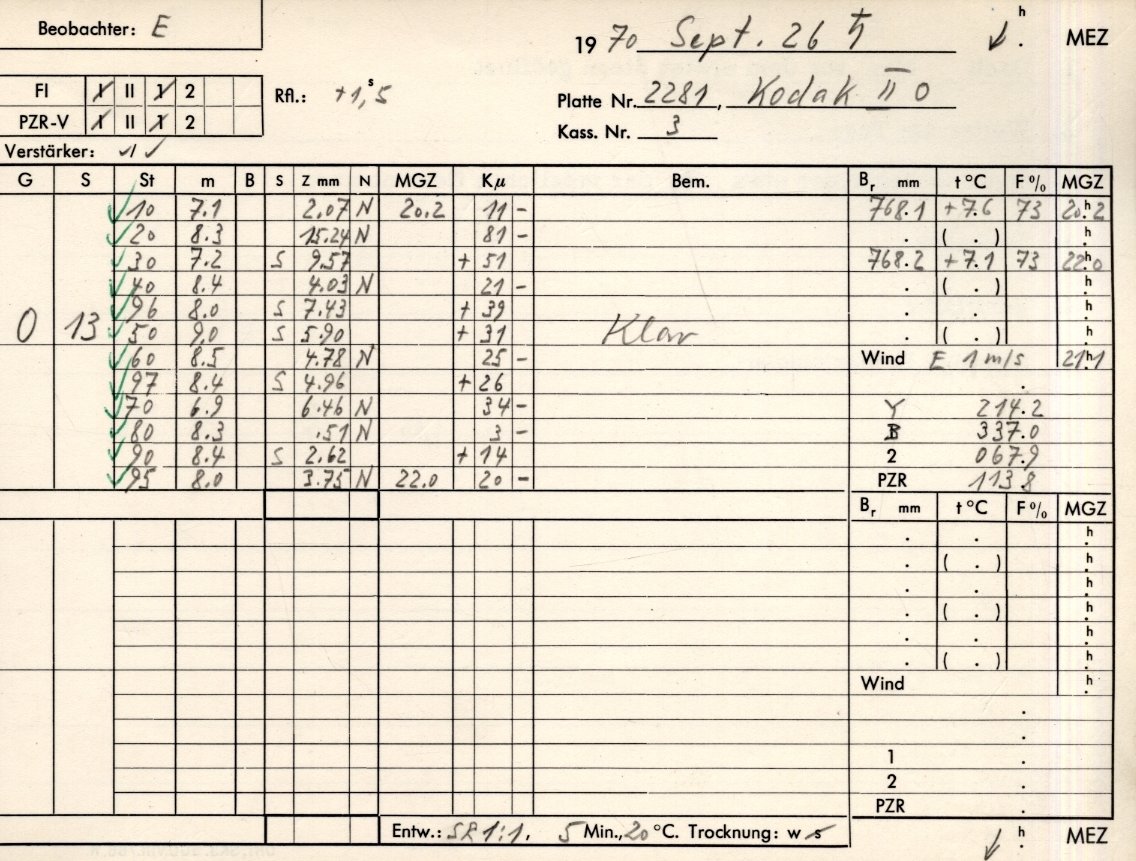 Beobachter: E
1970 Sept. 26 ♄ h . MEZ
FI I II 1 2
PZR-V I II 1 2
Rfl.: +1,ˢ5
Platte Nr. 2281, Kodak II O
Kass. Nr. 3
Verstärker:
G S St m B S Z mm N MGZ Kµ Bem. Bᵣ mm t °C F % MGZ
10 7.1 2.07 N 20.2 11 - 768.1 +7.6 73 20ʰ.2
20 8.3 15.24 N 81 - . ( . ) h.
30 7.2 S 9.57 + 51 768.2 +7.1 73 22ʰ.0
40 8.4 4.03 N 21 - . ( . ) h.
96 8.0 S 7.43 + 39 . . h.
0 13 50 9.0 S 5.90 + 31 Klar . ( . ) h.
60 8.5 4.78 N 25 - Wind E 1 m/s 21ʰ.1
97 8.4 S 4.96 + 26 .
70 6.9 6.46 N 34 - Y 214.2
80 8.3 .51 N 3 - B 337.0
90 8.4 S 2.62 + 14 2 067.9
95 8.0 3.75 N 22.0 20 - PZR 113.8
Bᵣ mm t °C F % MGZ
. . h.
. ( . ) h.
. . h.
. ( . ) h.
. . h.
. ( . ) h.
Wind h.
.
.
1 .
2 .
PZR .
Entw.: 1:1, 5 Min., 20 °C. Trocknung: w s h . MEZ